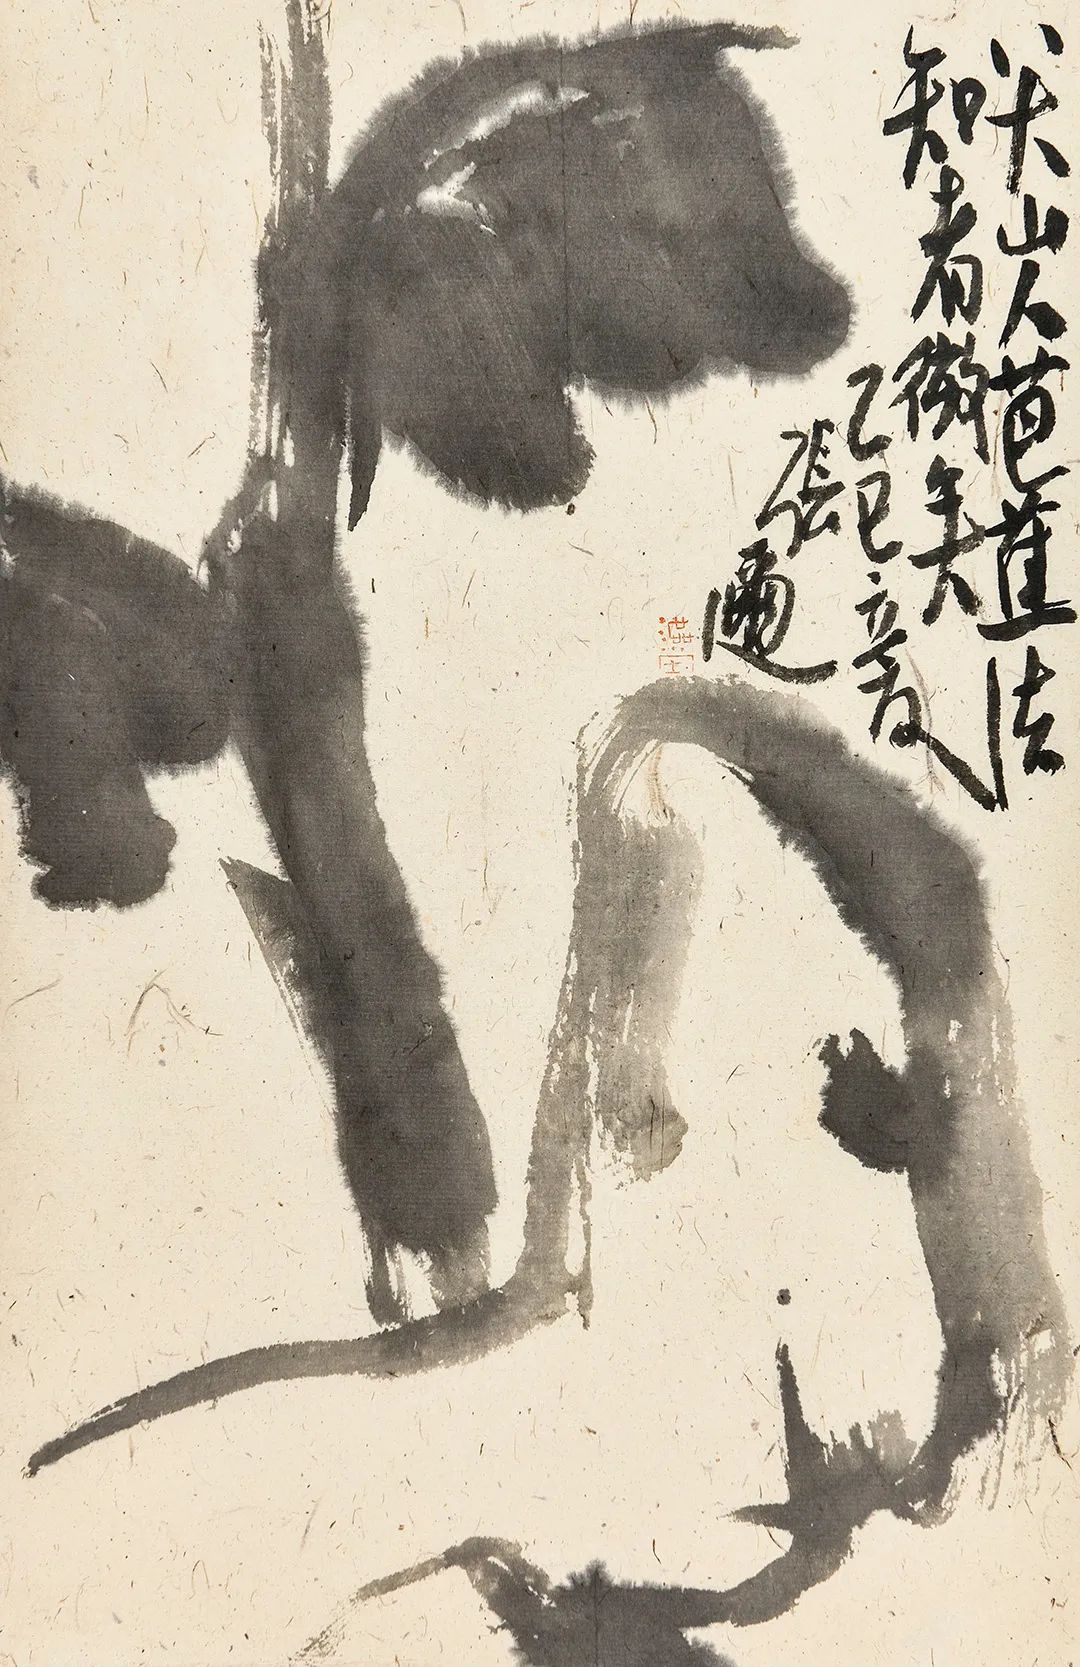 八大山人芭蕉法
知者微矣
乙巳立夏
張邇